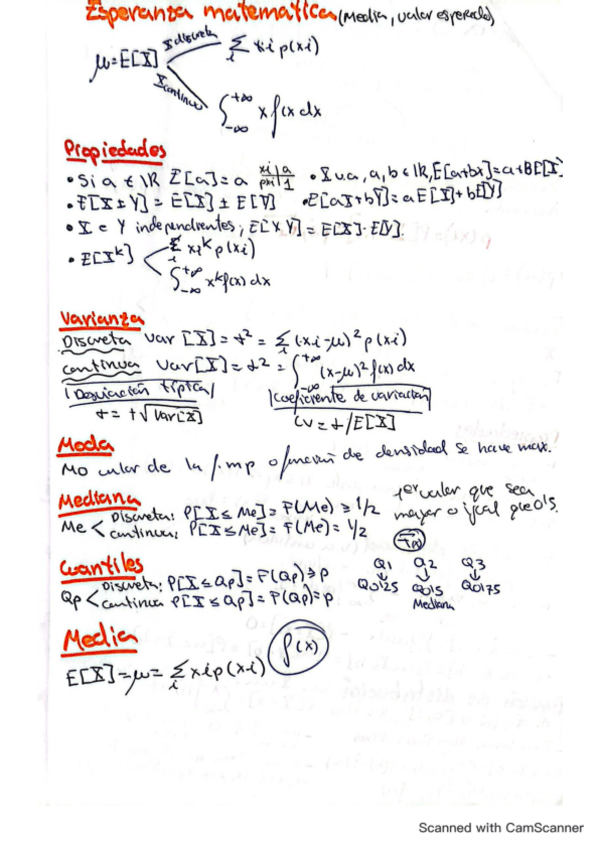 Esperanza matematica (Media, valor esperado)
μ=E[X] X discreta Σi xi p(xi)
X continua ∫-∞+∞ x f(x dx
Propiedades
• Si a ∈ ℝ E[a]=a xi|a pxi|1 • X v.a, a, b ∈ ℝ, E[a+bx]=a+BE[X]
• E[X±Y] = E[X] ± E[Y] • E[aX+bY]=aE[X]+bE[Y]
• X e Y independientes; E[X Y] = E[X]·E[Y].
• E[X^k] < Σi xi^k p(xi)
∫-∞+∞ x^k f(x) dx
Varianza
Discreta var [X] = σ² = Σi (xi-μ)² p(xi)
continua Var[X] = σ² = ∫-∞+∞ (x-μ)² f(x) dx
|Desviación típica| |Coeficiente de variación|
σ = +√Var[X] CV = σ/E[X]
Moda
Mo valor de la f.mp o función de densidad se hace max.
Mediana
Me < Discreta: P[X≤Me]=F(Me)≥1/2
continua: P[X≤Me]=F(Me)=1/2
1er valor que sea
mayor o igual que 0'5.
F(x)
Cuantiles
Qp < Discreta: P[X≤Qp]=F(Qp)≥p
continua P[X≤Qp]=F(Qp)=p
Q1 Q2 Q3
↓ ↓ ↓
Q0'25 Q0'5 Q0'75
Mediana
Media
E[X]=μ=Σi xi p(xi) f(x)
Scanned with CamScanner